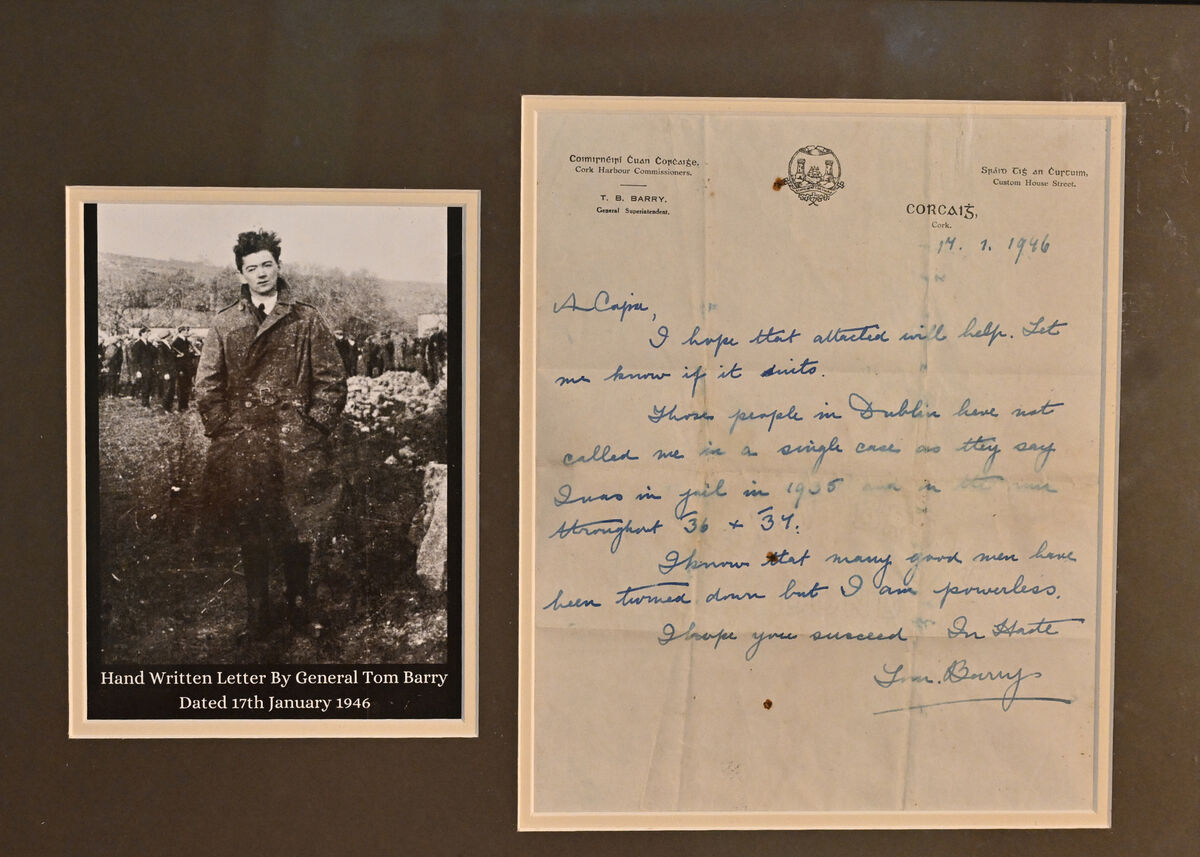 Hand Written Letter By General Tom Barry
Dated 17th January 1946
Coimirnéirí Cuan Corcaiġe.
Cork Harbour Commissioners.
T. B. BARRY.
General Superintendent.
Sráid Tiġ an Ċustuim,
Custom House Street.
CORCAIĠ,
Cork.
17. 1. 1946
A Cara,
I hope that attacted will help. Let
me know if it suits.
Those people in Dublin have not
called me in a single case as they say
I was in jail in 1935 and in the
throughout 36 + 37.
I know that many good men have
been turned down but I am powerless.
I hope you succeed In Haste
Tom. Barry